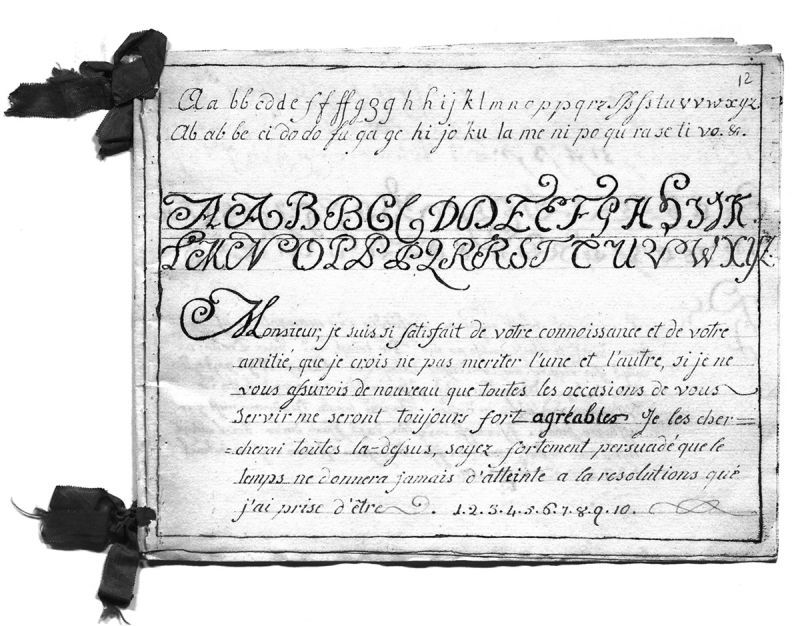 12
Aa bb cd de ff ffg g g h h i j k l m n o p p q r z ſſs ſs t u v v w x y z.
Ab ab be ci do do fu ga ge hi jo ku la me ni po qu ra se ti vo. &.
A A B B C C D D E E F F H H I J K
L M N O P P P Q R R S T T U V W X Y Z.
Monsieur, je suis si satisfait de votre connoissance et de votre
amitié, que je crois ne pas meriter l'une et l'autre, si je ne
vous assurois de nouveau que toutes les occasions de vous
servir me seront toujours fort agréables Je les cher=
=cherai toutes la=dessus, soyez fortement persuadé que le
temps ne donnera jamais d'atteinte a la resolutions que
j'ai prise d'être . 1.2.3.4.5.6.7.8.9.10.